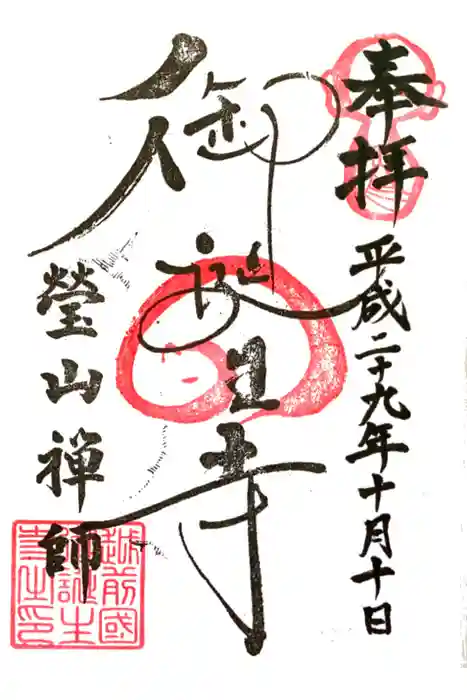 奉拝
平成二十九年十月十日
御誕生寺
瑩山禅師
越前國
御誕生
寺之印